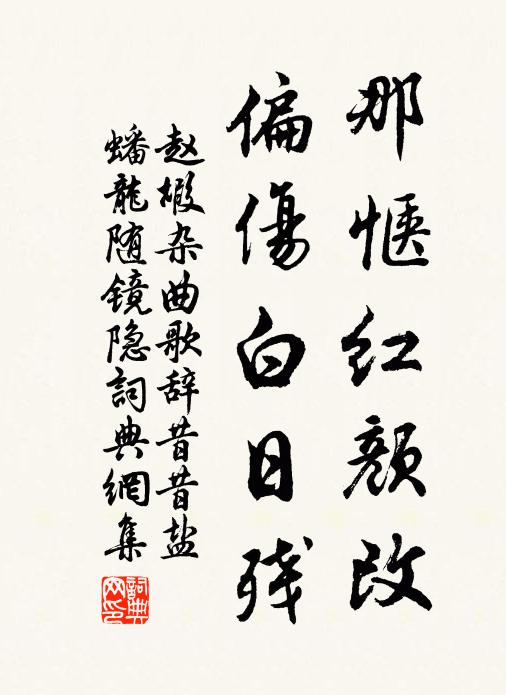 那惬红颜改
偏傷白日残
赵椴杂曲歌辞昔昔盐
蟠龍随镜隐詞典網集
詞典網印